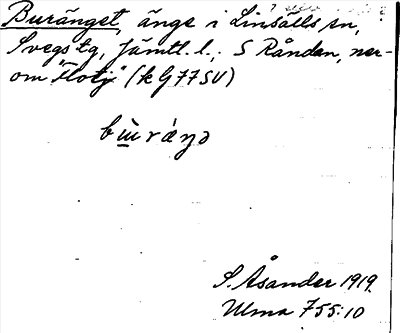 Buränget, änge i Linsälls sn,
Svegs tg, Jämtl. l.; S Råndan, ner-
om "Flotj" (k G77SV)
bùræ̀ŋə
S. Åsander 1919.
Ulma 755:10